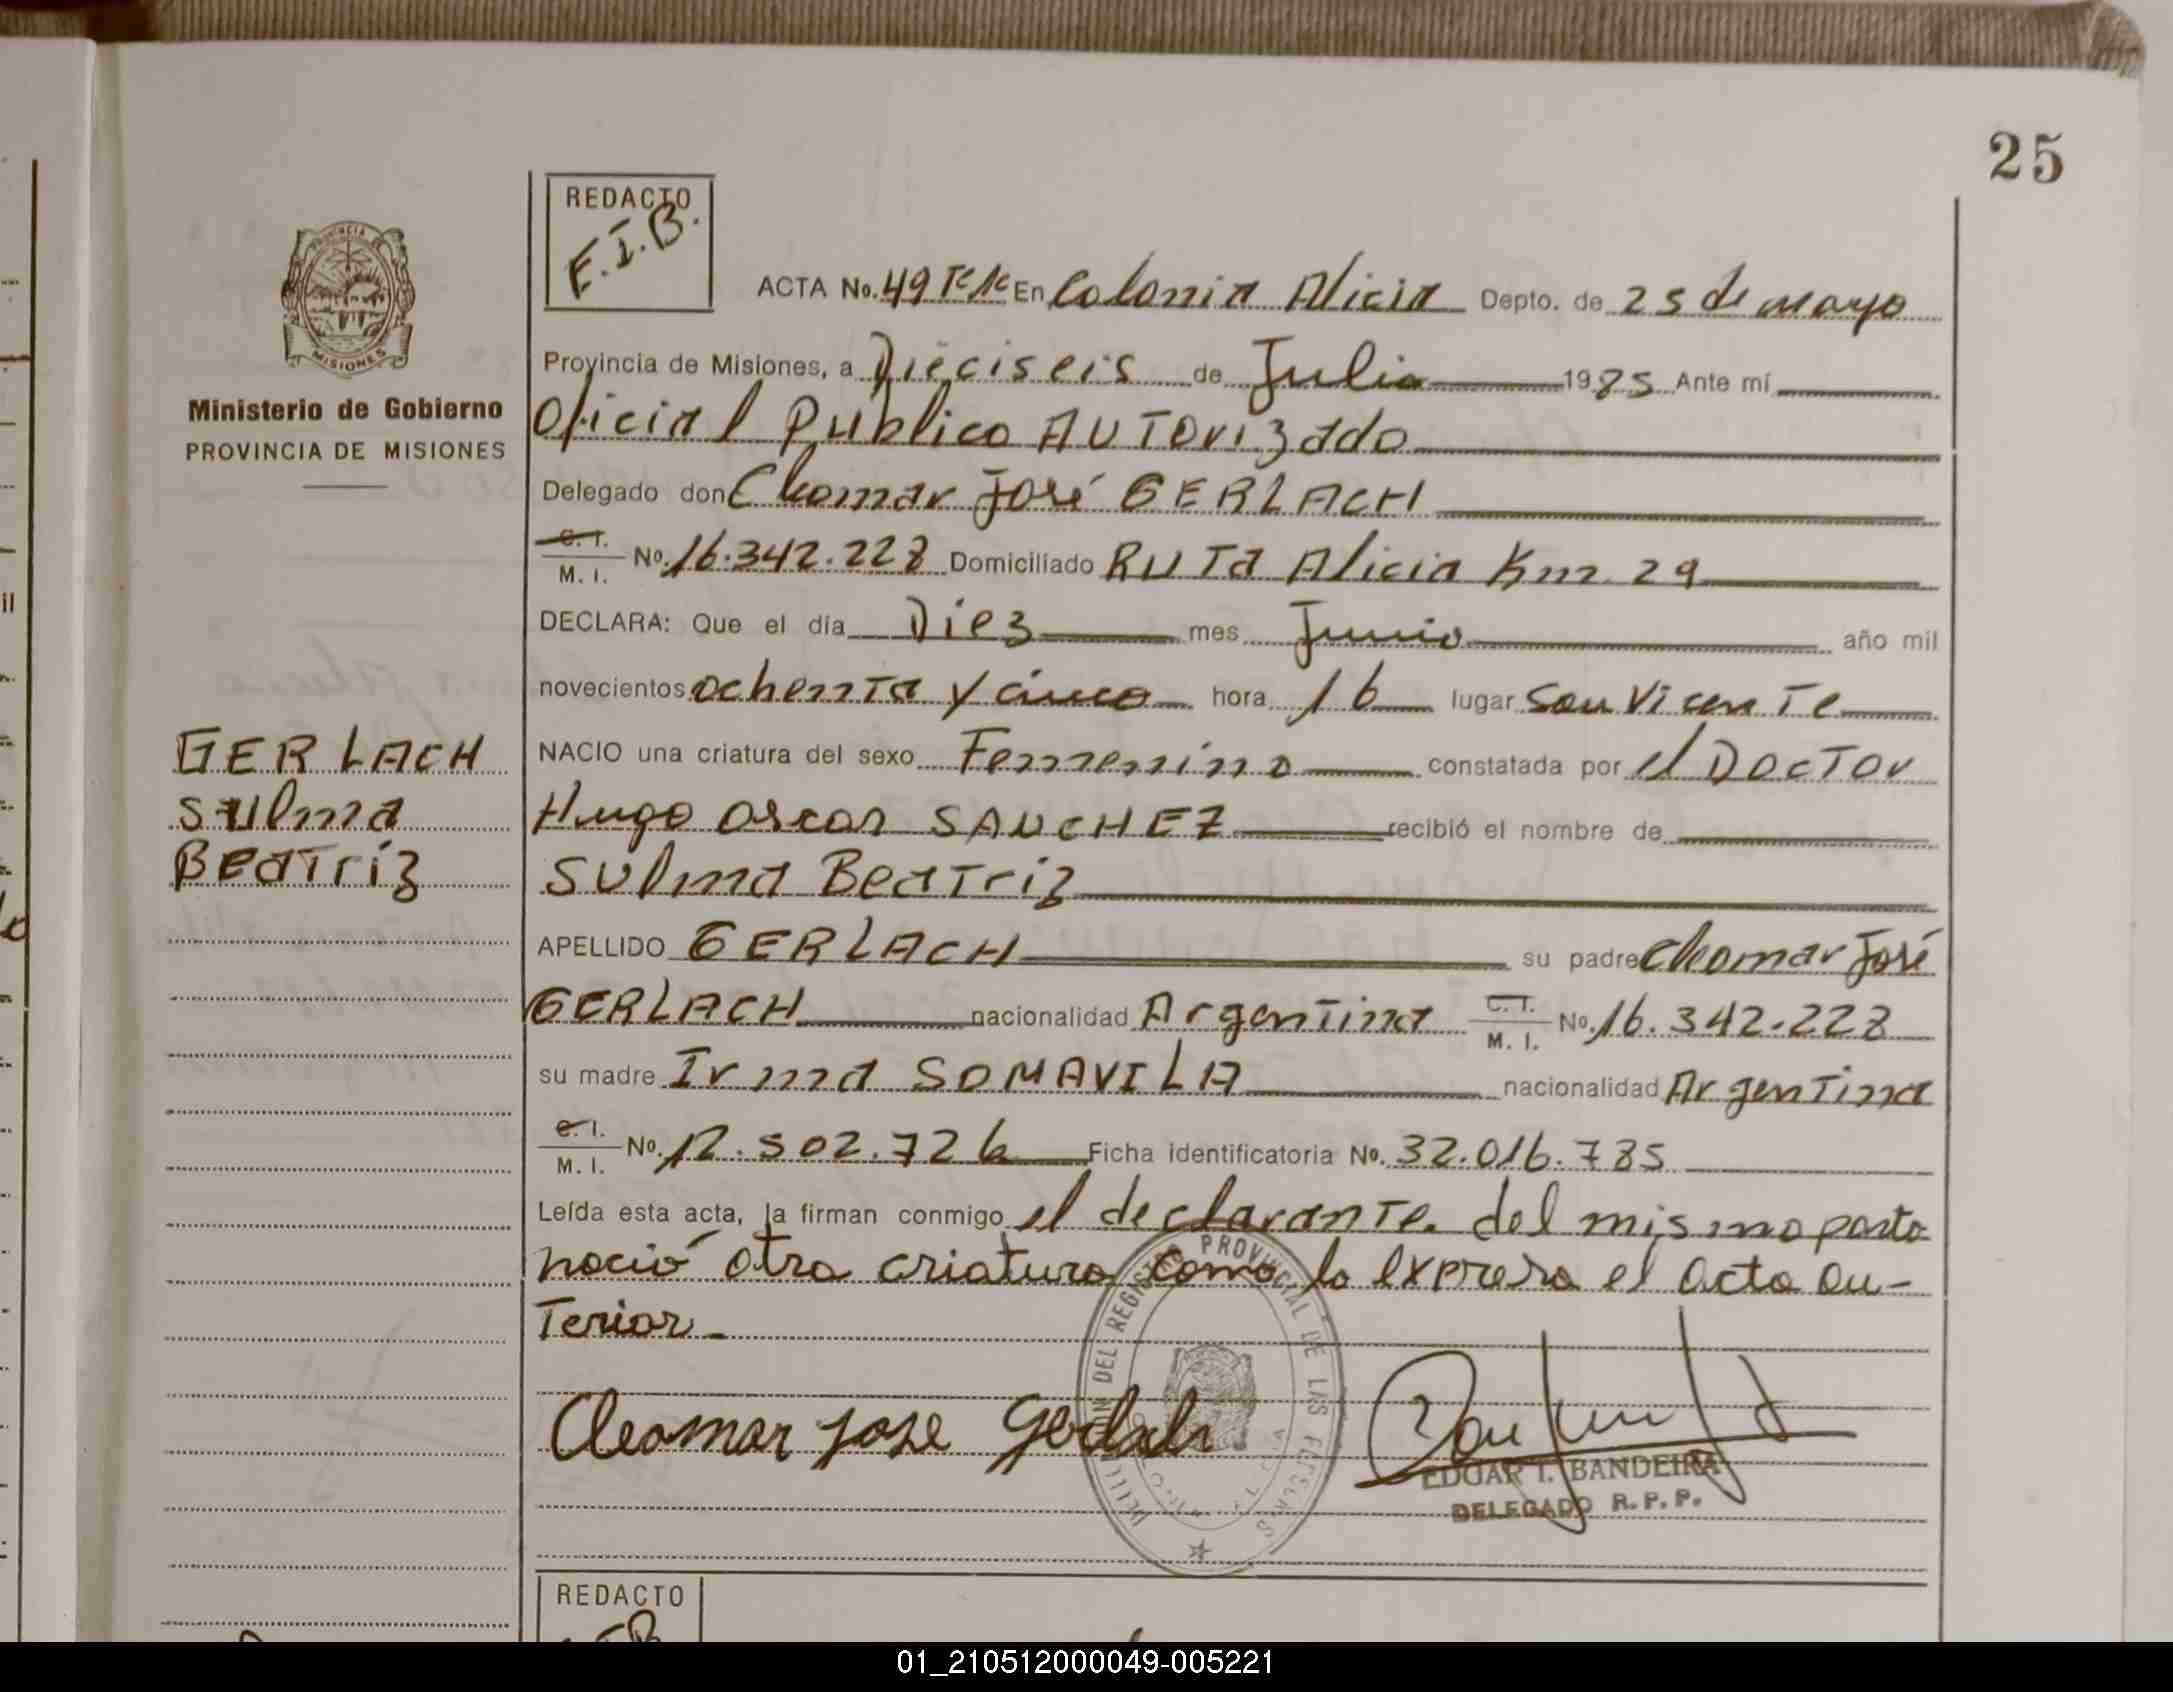 25
REDACTO
E.I.B.
PROVINCIA DE
MISIONES
Ministerio de Gobierno
PROVINCIA DE MISIONES
ACTA No. 49 En Colonia Alicia Depto. de 25 de mayo
Provincia de Misiones, a Dieciseis de Julio 1985 Ante mí
Oficial Publico AUTorizado
Delegado don Cleomar José GERLACH
C. I. M. I. No. 16.342.228 Domiciliado RUTa Alicia Km 29
DECLARA: Que el día Diez mes Junio año mil
novecientos ochenta y cinco hora 16 lugar San Vicente
NACIO una criatura del sexo Femenino constatada por el Doctor
Hugo Oscar SANCHEZ recibió el nombre de
Sulma Beatriz
APELLIDO GERLACH su padre Cleomar José
GERLACH nacionalidad Argentina C. I. M. I. No. 16.342.228
su madre Irma SOMAVILA nacionalidad Argentina
C. I. M. I. No. 12.502.726 Ficha identificatoria No. 32.016.785
Leída esta acta, la firman conmigo el declarante. del mismo parto
nació otra criatura como lo expresa el acta an-
Terior.
GERLACH
Sulma
Beatriz
Cleomar Jose Gerlach
DEL REGISTRO PROVINCIAL DE LAS PERSONAS
EDGAR I. BANDEIRA
DELEGADO R.P.P.
REDACTO
01_210512000049-005221